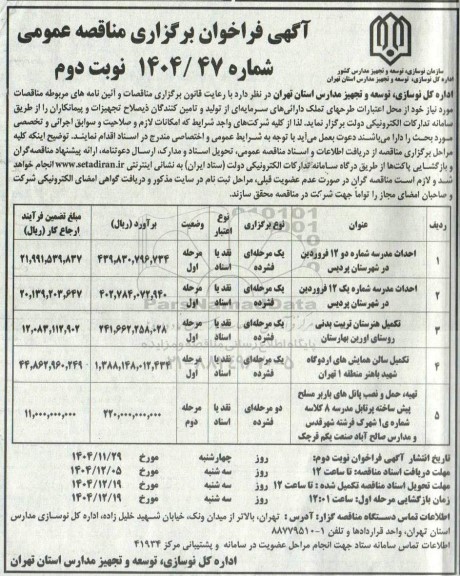 آگهی فراخوان برگزاری مناقصه عمومی
شماره ۴۷ /۱۴۰۴ نوبت دوم
سازمان نوسازی، توسعه و تجهیز مدارس کشور
اداره کل نوسازی، توسعه و تجهیز مدارس استان تهران
اداره کل نوسازی، توسعه و تجهیز مدارس استان تهران در نظر دارد با رعایت قانون برگزاری مناقصات و آئین نامه های مربوطه مناقصات
مورد نیاز خود از محل اعتبارات طرحهای تملک دارائی‌های سرمایه‌ای از تولید و تامین کنندگان ذیصلاح تجهیزات و پیمانکاران را از طریق
سامانه تدارکات الکترونیکی دولت برگزار نماید. لذا از کلیه شرکت‌های واجد شرایط که امکانات لازم و صلاحیت و سوابق اجرائی و تخصصی
مورد بحث را دارا می‌باشند دعوت بعمل می‌آید با توجه به شرایط عمومی و اختصاصی مندرج در اسناد اقدام نمایند. توضیح اینکه کلیه
مراحل برگزاری مناقصه از دریافت اطلاعات و اسناد مناقصه عمومی، تحویل اسناد و مدارک، ارسال دعوتنامه، ارائه پیشنهاد مناقصه‌گران
و بازگشایی پاکت‌ها از طریق درگاه سامانه تدارکات الکترونیکی دولت (ستاد ایران) به نشانی اینترنتی www.setadiran.ir انجام خواهد
شد و لازم است مناقصه گران در صورت عدم عضویت قبلی، مراحل ثبت نام در سایت مذکور و دریافت گواهی امضای الکترونیکی شرکت
و صاحبان امضای مجاز را تواما جهت شرکت در مناقصه محقق سازند.
ردیف عنوان نوع برگزاری نوع اعتبار وضعیت برآورد (ریال) مبلغ تضمین فرآیند ارجاع کار (ریال)
۱ احداث مدرسه شماره دو ۱۲ فروردین در شهرستان پردیس یک مرحله‌ای فشرده نقد یا اسناد مرحله اول ۴۳۹,۸۳۰,۷۹۶,۷۳۴ ۲۱,۹۹۱,۵۳۹,۸۳۷
۲ احداث مدرسه شماره یک ۱۲ فروردین در شهرستان پردیس یک مرحله‌ای فشرده نقد یا اسناد مرحله اول ۴۰۲,۷۸۴,۰۷۲,۹۴۰ ۲۰,۱۳۹,۲۰۳,۶۴۷
۳ تکمیل هنرستان تربیت بدنی روستای اورین بهارستان یک مرحله‌ای فشرده نقد یا اسناد مرحله اول ۲۴۱,۶۶۲,۲۵۸,۰۲۸ ۱۲,۰۸۳,۱۱۲,۹۰۲
۴ تکمیل سالن همایش های اردوگاه شهید باهنر منطقه ۱ تهران یک مرحله‌ای فشرده نقد یا اسناد مرحله اول ۱,۳۸۸,۱۴۸,۰۱۲,۴۳۴ ۴۴,۸۶۲,۹۶۰,۲۴۹
۵ تهیه، حمل و نصب پانل های باربر مسلح پیش ساخته پرتابل مدرسه ۸ کلاسه شماره ی۱ شهرک فرشته شهرقدس و مدارس صالح آباد صنعت یکم قرچک دو مرحله‌ای فشرده نقد یا اسناد مرحله دوم ۲۲۰,۰۰۰,۰۰۰,۰۰۰ ۱۱,۰۰۰,۰۰۰,۰۰۰
تاریخ انتشار آگهی فراخوان نوبت دوم: روز چهارشنبه مورخ ۱۴۰۴/۱۱/۲۹
مهلت دریافت اسناد مناقصه: تا ساعت ۱۲ روز سه شنبه مورخ ۱۴۰۴/۱۲/۰۵
مهلت تحویل اسناد مناقصه تکمیل شده : تا ساعت ۱۲ روز سه شنبه مورخ ۱۴۰۴/۱۲/۱۹
زمان بازگشایی مرحله اول: ساعت ۱۲:۰۱ روز سه شنبه مورخ ۱۴۰۴/۱۲/۱۹
اطلاعات تماس دستگاه مناقصه گزار: آدرس : تهران، بالاتر از میدان ونک، خیابان شهید خلیل زاده، اداره کل نوسازی مدارس
استان تهران، واحد قراردادها و تلفن ۱-۸۸۷۷۹۵۱۰
اطلاعات تماس سامانه ستاد جهت انجام مراحل عضویت در سامانه و پشتیبانی مرکز ۴۱۹۳۴
اداره کل نوسازی، توسعه و تجهیز مدارس استان تهران